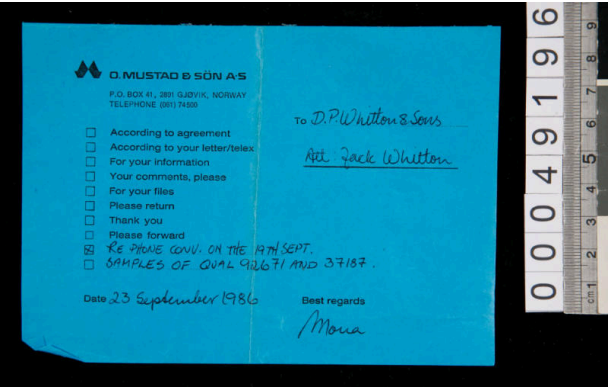 O. MUSTAD & SÖN A·S
P.O. BOX 41, 2801 GJØVIK, NORWAY
TELEPHONE (061) 74500
To D.P. Whitton & Sons
Att Jack Whitton
According to agreement
According to your letter/telex
For your information
Your comments, please
For your files
Please return
Thank you
Please forward
RE PHONE CONV. ON THE 19TH SEPT.
SAMPLES OF QUAL 92671 AND 37187.
Date 23 September 1986
Best regards
Mona
00049196
cm 1 2 3 4 5 6 7 8 9